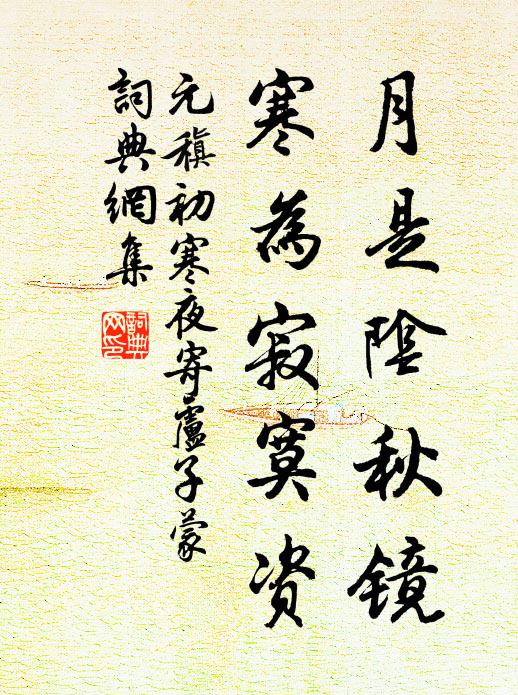 月是陰秋鏡
寒為寂寞資
元稹初寒夜寄盧子蒙
詞典網集
詞典
网印